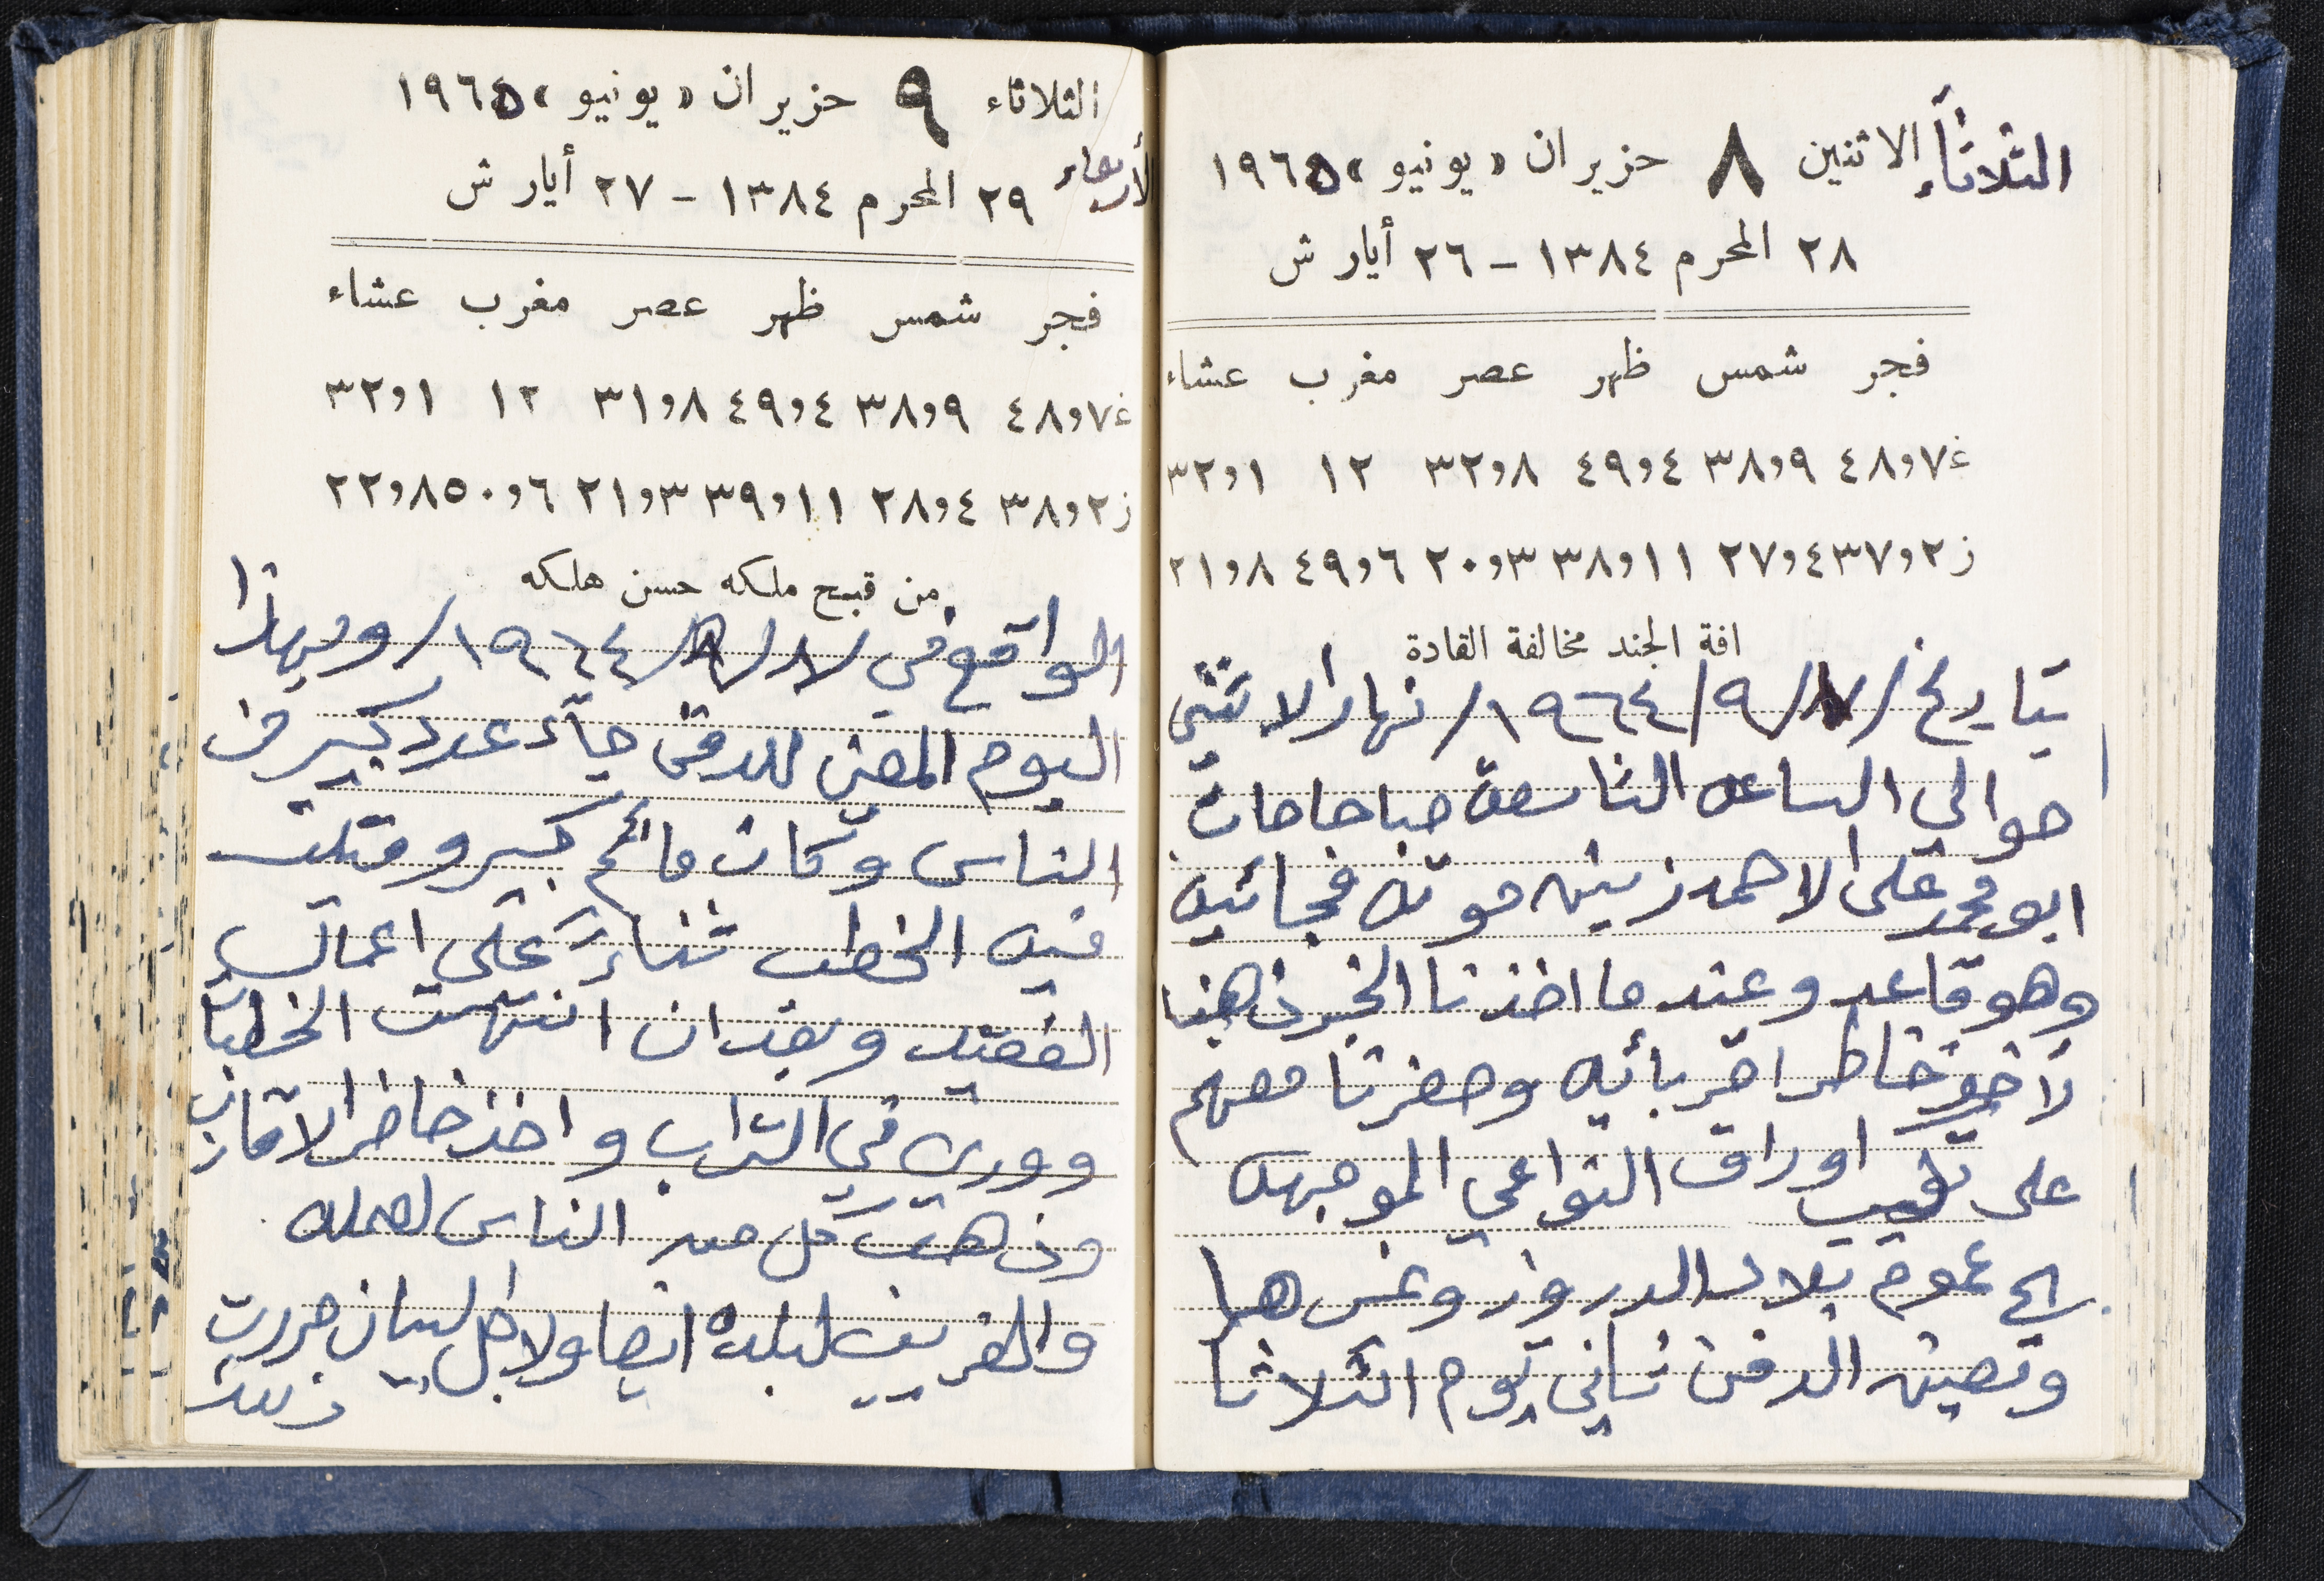 الثلاثاء الاثنين ٨ حزيران «يونيو» ١٩٦٥
٢٨ المحرم ١٣٨٤ - ٢٦ أيار ش
فجر شمس ظهر عصر مغرب عشاء
غ ٧و٤٨ ٩و٣٨ ٤و٤٩ ٨و٣٢ ١٢ ١و٣٢
ز ٢و٣٧ ٤و٢٧ ١١و٣٨ ٣و٢٠ ٦و٤٩ ٨و٢١
افة الجند مخالفة القادة
بتاريخ /٧/٩/١٩٦٤/ نهار الاثنين
حوالي الساعه التاسعة صباحا مات
ابو محمد علي الاحمد زينيه موته فجائيه
وهو قاعد وعندما اخذنا الخبر ذهبنا
لأخذ خاطر اقربائيه وحضرنا معهم
على اوراق النواعي الموجهه
الى عموم بلاد الدروز وغيرها
وتعين الدفن ثاني يوم الثلاثا
الثلاثاء ٩ حزيران «يونيو» ١٩٦٥
الأربعاء ٢٩ المحرم ١٣٨٤ - ٢٧ أيار ش
فجر شمس ظهر عصر مغرب عشاء
غ ٧و٤٨ ٩و٣٨ ٤و٤٩ ٨و٣١ ١٢ ١و٣٢
ز ٢و٣٨ ٤و٢٨ ١١و٣٩ ٣و٢١ ٦و٥٠ ٨و٢٢
من قبح ملكه حسن هلكه
الواقع في /٨/٩/١٩٦٤/ وبهاذا
اليوم المعين للدفن جآء عدد كبير من
الناس وكان مأتم كبير وقيلت
فيه الخطب ثناء على اعمال
الفقيد وبعد ان انتهت الخطبات
وورى في التراب واخذ خاطر الاقارب
وذهبت كل من الناس لعمله
والغريب لبلده ايضا ولاجل